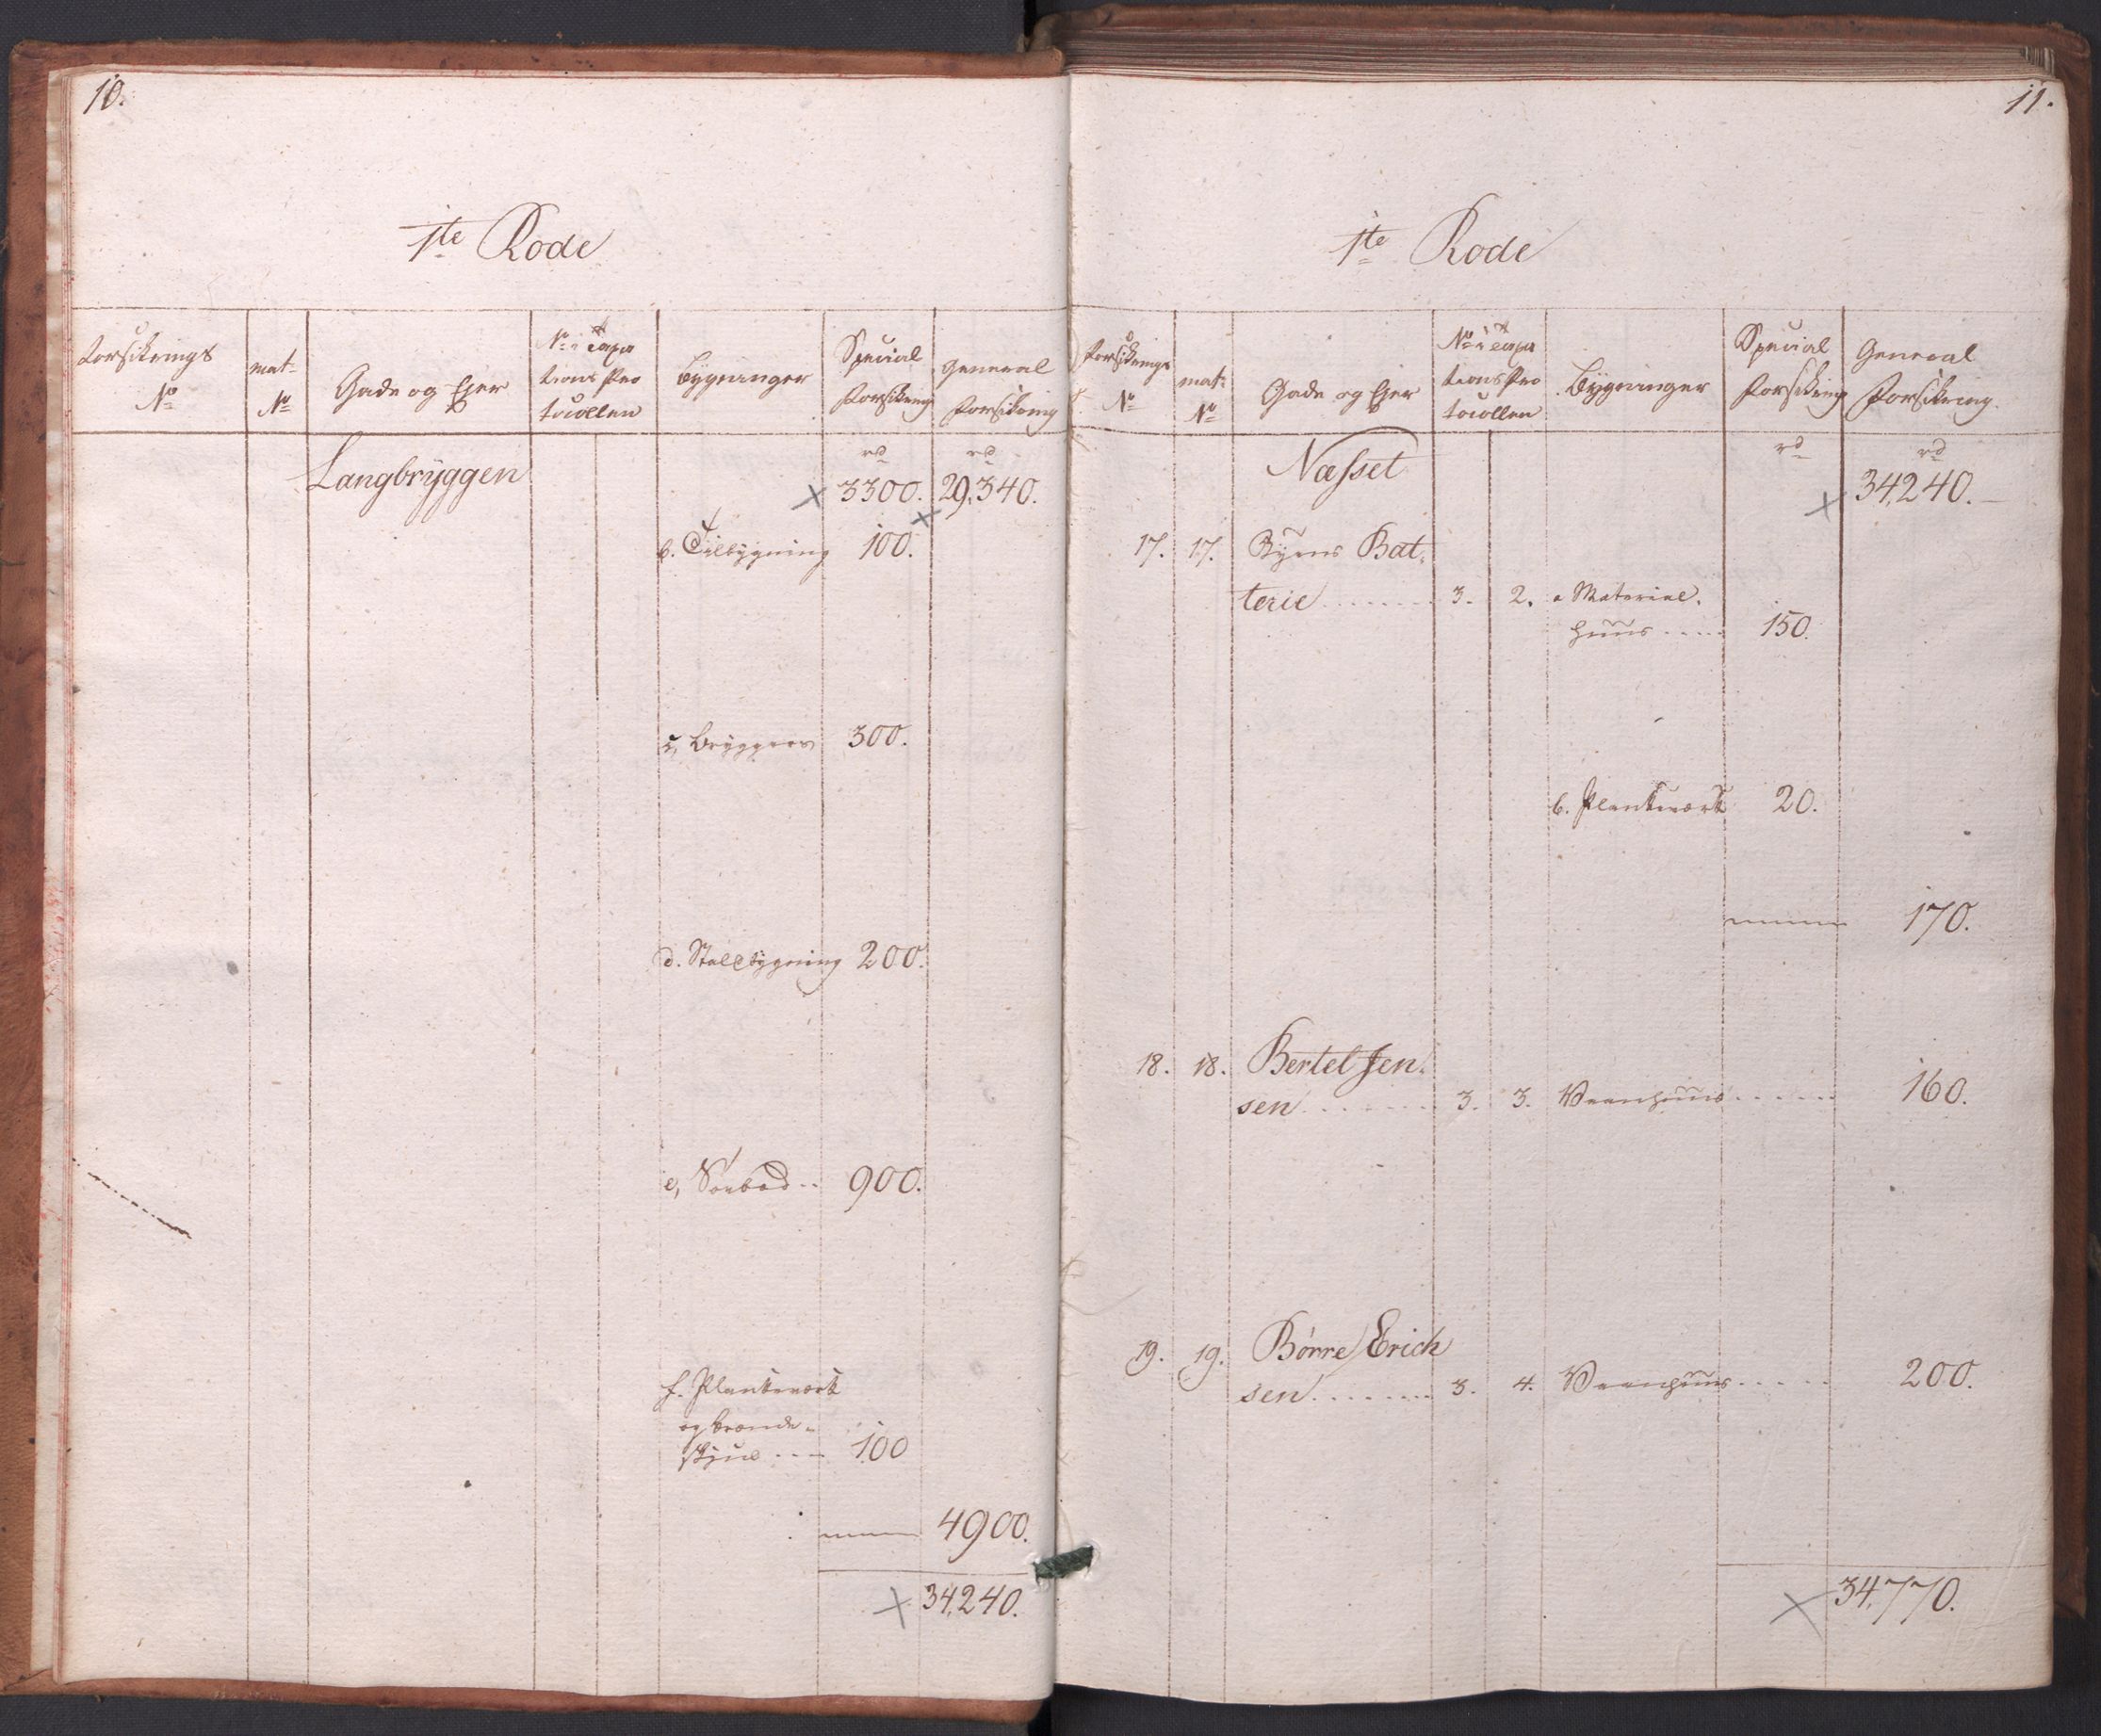 10.
1te Rode
Forsikrings
No
mat:
No
Gade og Ejer
No i Taxa
tions Pro
tocollen
Bygninger
Special
Forsikring
General
Forsikring
Langbryggen
rd
rd
3300. 29,340.
b. Tilbygning 100.
c, Bryggers 300.
d. Staldbygning 200.
e, Søebod .. 900.
f. Plankeværk
og brænde-
skjul ... 100
4900.
34,240.
11.
1te Rode
Forsikrings
No
mat:
No
Gade og Ejer
No i Taxa
tions Pro
tocollen
Bygninger
Special
Forsikring
General
Forsikring.
Næsset
rd
rd
34,240.
17. 17. Byens Bat,
terie ....... 3. 2. a Material,
huus .... 150.
b. Plankeværk 20.
170.
18. 18. Bertel Jen,
sen ....... 3. 3. Vaanhuus ..... 160.
19. 19. Børre Erich
sen ....... 3. 4. Vaanhuus ..... 200.
34,770.